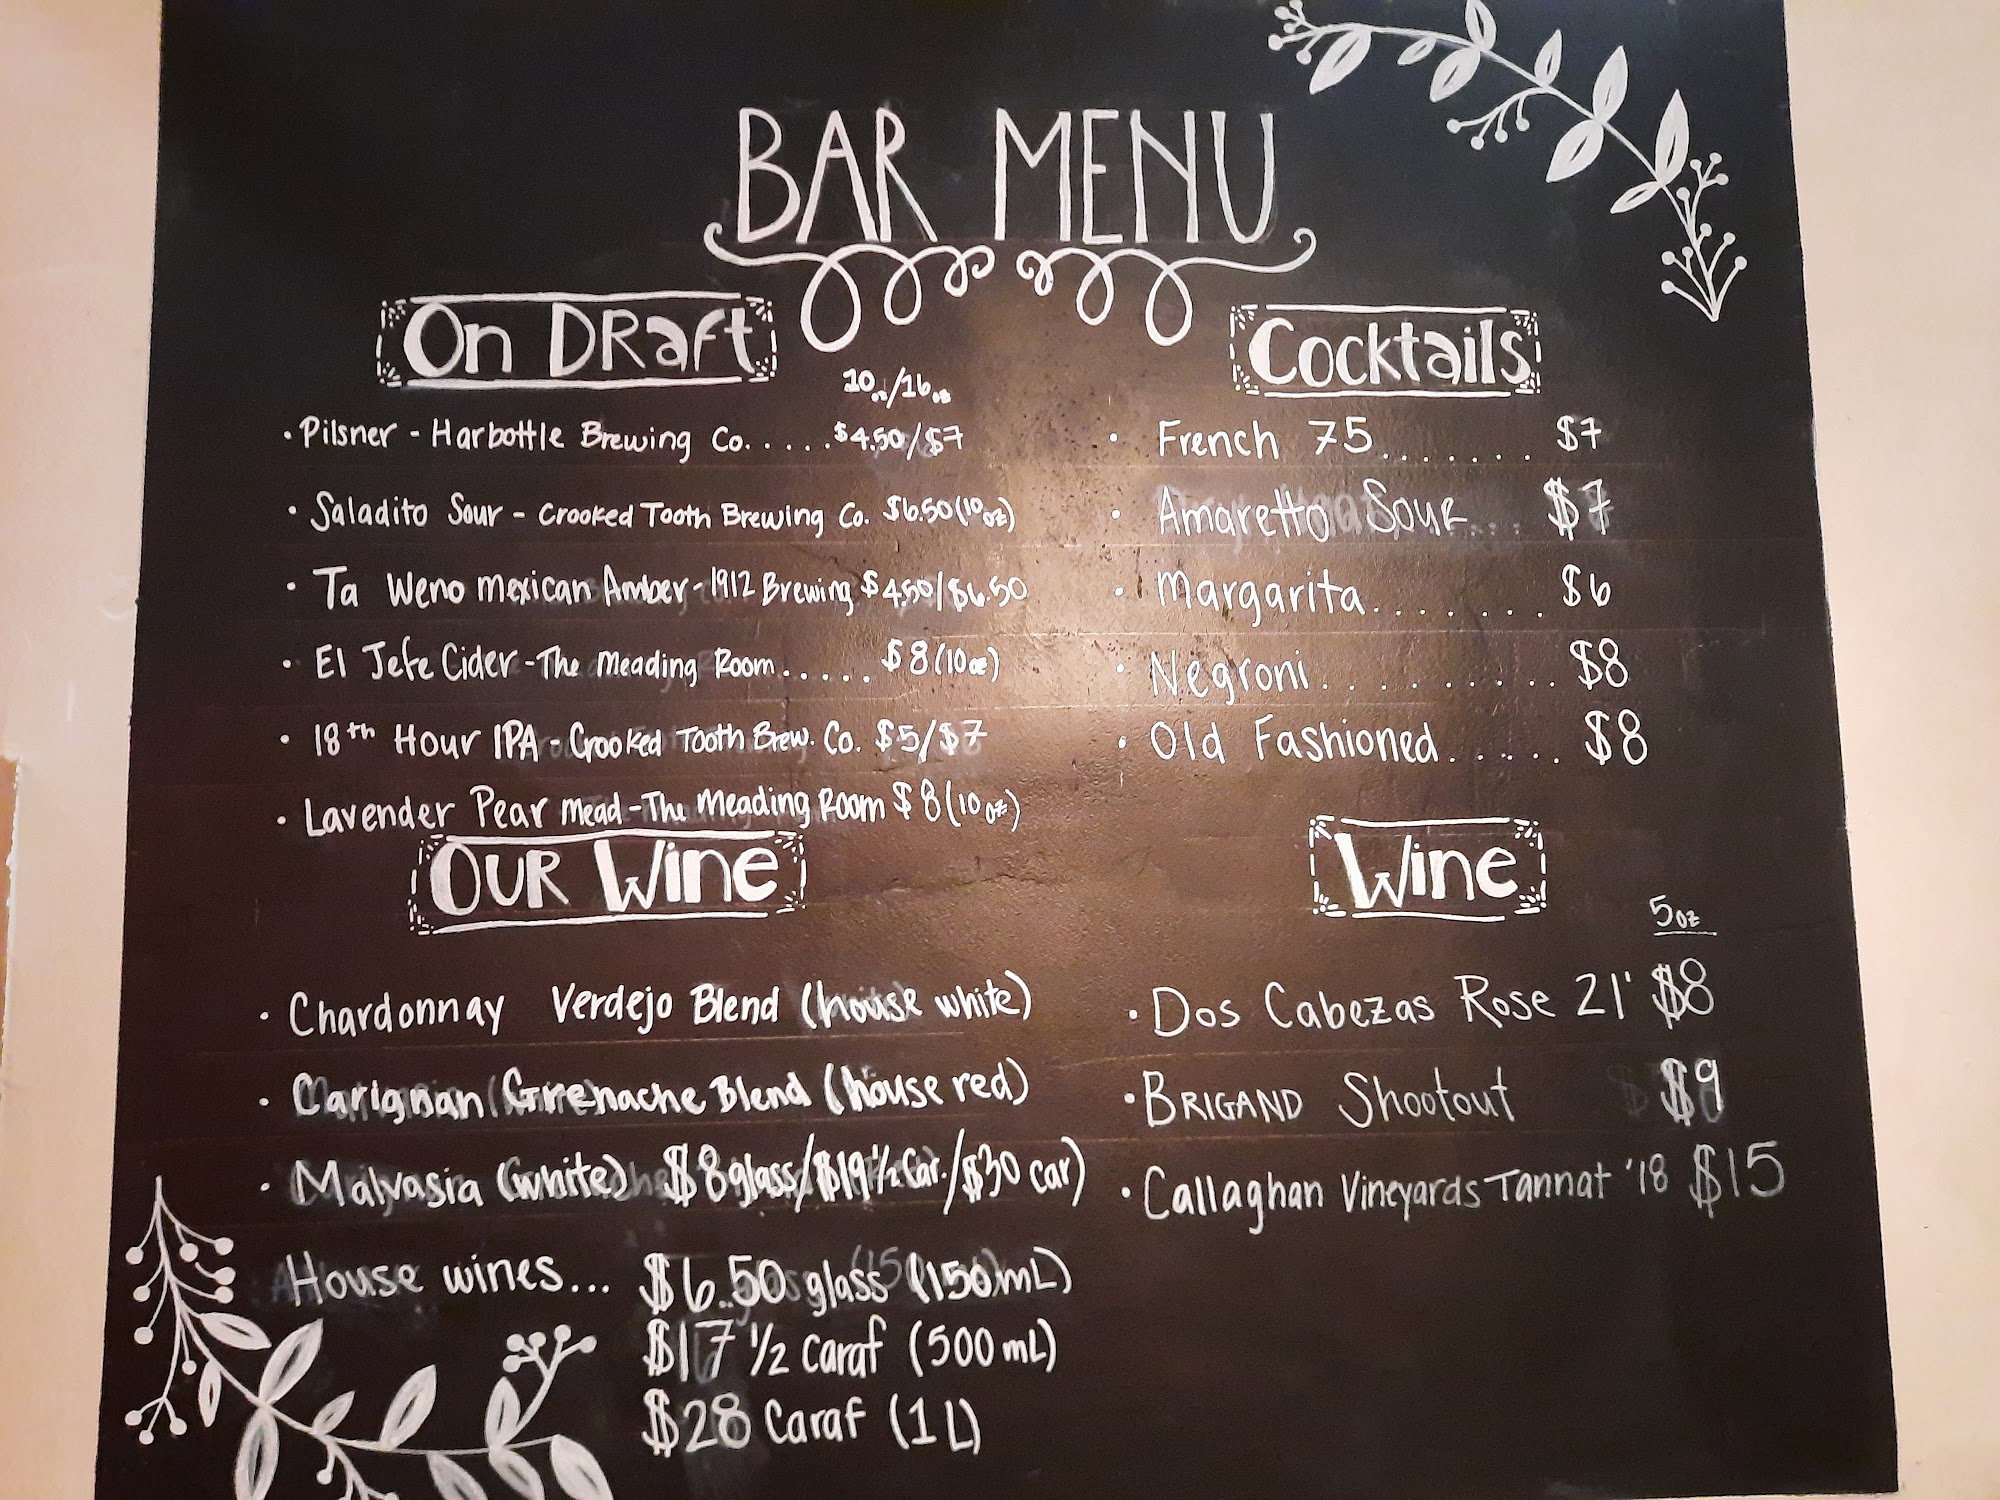 BAR MENU
On DRaft
10oz/16oz
• Pilsner - Harbottle Brewing Co. . . . . $4.50/$7
• Saladito Sour - Crooked Tooth Brewing Co. $6.50 (10oz)
• Ta Weno Mexican Amber - 1912 Brewing $4.50/$6.50
• El Jefe Cider - The Meading Room . . . . . $8 (10oz)
• 18th Hour IPA - Crooked Tooth Brew. Co. $5/$7
• Lavender Pear Mead - The Meading Room $8 (10oz)
Cocktails
• French 75 . . . . . . . $7
• Amaretto Sour . . . $7
• Margarita . . . . . . . $6
• Negroni . . . . . . . . . $8
• Old Fashioned . . . . . $8
OUR Wine
• Chardonnay Verdejo Blend (house white)
• Carignan Grenache Blend (house red)
• Malvasia (white) $8 glass/$19 ½ Car./$30 car)
House wines... $6.50 glass (150mL)
$17 ½ Caraf (500mL)
$28 Caraf (1L)
Wine
5oz
• Dos Cabezas Rose 21' $8
• BRIGAND Shootout $9
• Callaghan Vineyards Tannat '18 $15